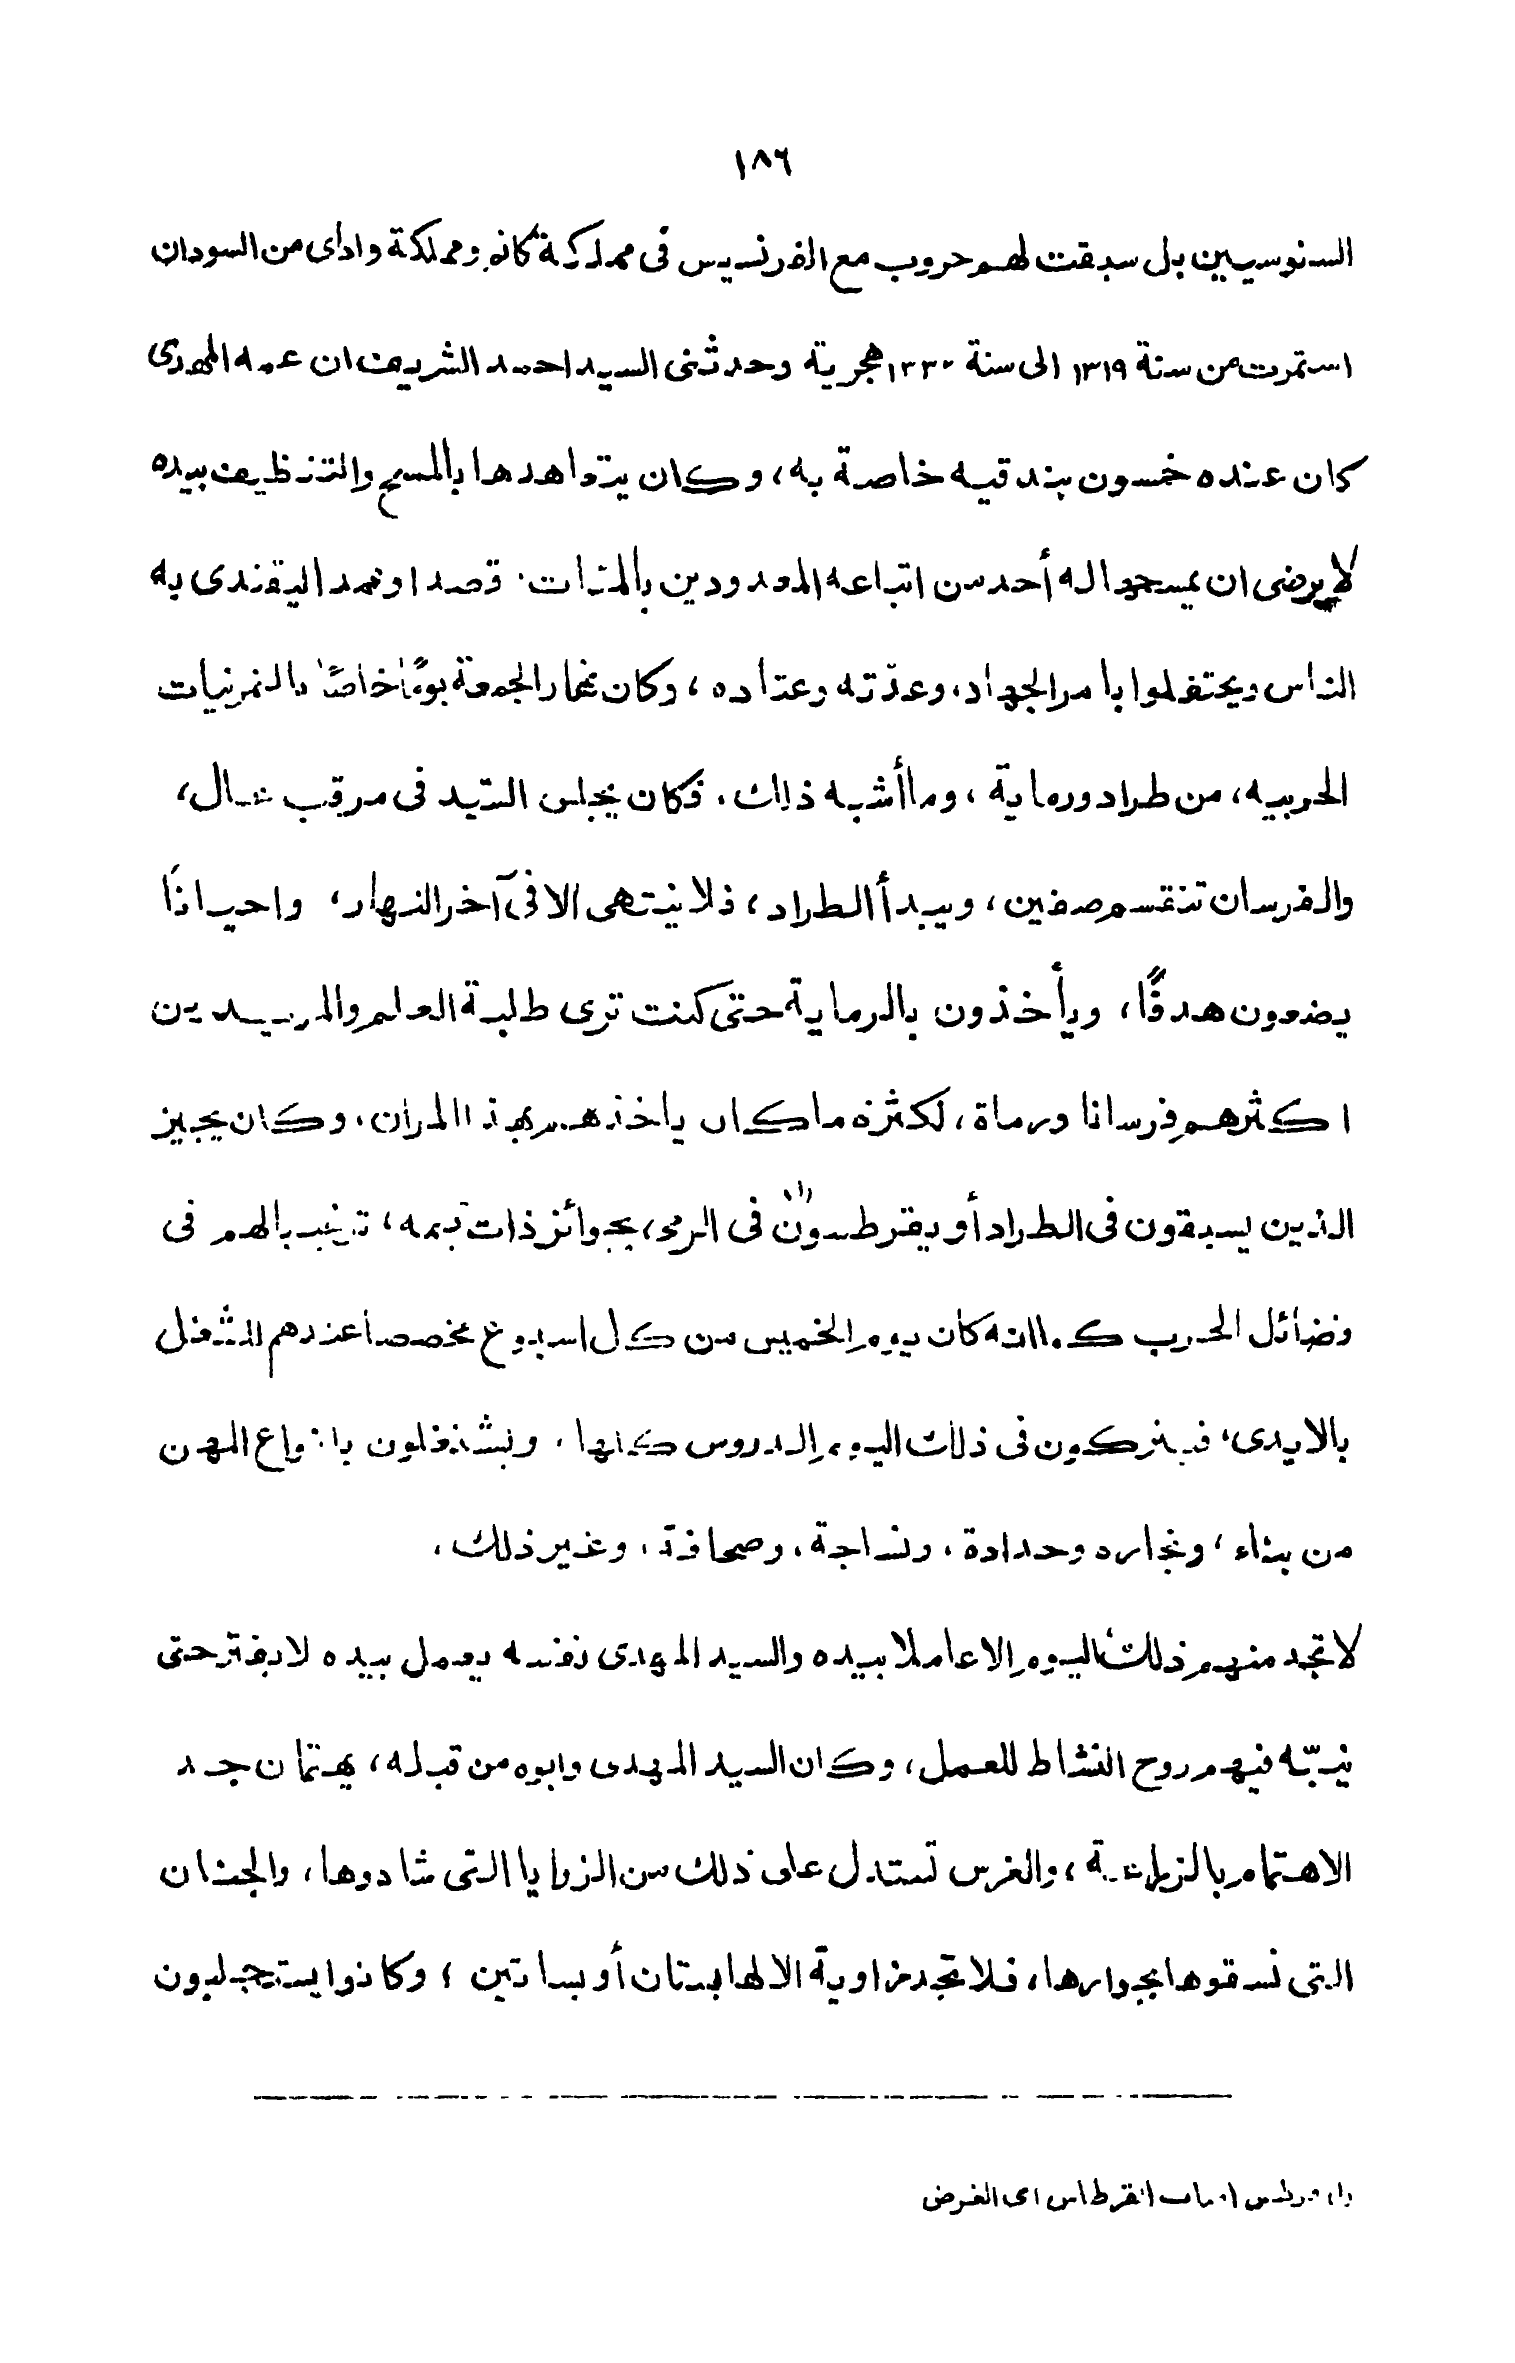 ١٨٦
السنوسيين بل سبقت لهم حروب مع الفرنسيس فى مملكة كانم ومملكة واداى من السودان
استمرت من سنة ١٣١٩ الى سنة ١٣٣٢ هجرية وحدثنى السيد احمد الشريف ان عمه المهدى
كان عنده خمسون بندقيه خاصة به، وكان يتعاهدها بالمسح والتنظيف بيده
لا يرضى ان يمسحها له أحد من اتباعه المعدودين بالمئات. قصدا وعمدا ليقتدى به
الناس ويحتفلوا بامر الجهاد، وعدّته وعتاده، وكان نهار الجمعة يومًا خاصًا بالتمرينات
الحربيه، من طراد ورماية، وما أشبه ذلك. فكان يجلس السّيد فى مرقب عال،
والفرسان تنقسم صفين، ويبدأ الطراد، فلا ينتهى الا فى آخر النهار، واحيانًا
يضعون هدفًا، ويأخذون بالرماية حتى كنت ترى طلبة العلم والمريدين
اكثرهم فرسانا ورماة، لكثرة ما كان ياخذهم بهذا المران، وكان يجيز
الذين يسبقون فى الطراد أو يقرطسون (١) فى الرمى، بجوائز ذات قيمه، ترغيبا لهم فى
فضائل الحرب كما انه كان يوم الخميس من كل اسبوع مخصصا عندهم للشغل
بالايدى، فيتركون فى ذلك اليوم الدروس كلها، ويشتغلون بانواع المهن
من بناء، ونجاره وحدادة، ونساجة، وصحافة، وغير ذلك،
لا تجد منهم ذلك اليوم الا عاملا بيده والسيد المهدى نفسه يعمل بيده لا يفتر حتى
ينبّه فيهم روح النشاط للعمل، وكان السيد المهدى وابوه من قبله، يهتمان جد
الاهتمام بالزراعة، والغرس تستدل على ذلك من الزوايا التى شادوها، والجنان
التى نسقوها بجوارها، فلا تجد زاوية الا لها بستان أو بساتين، وكانوا يستجلبون
(١) قرطس اصاب القرطاس اى الغرض